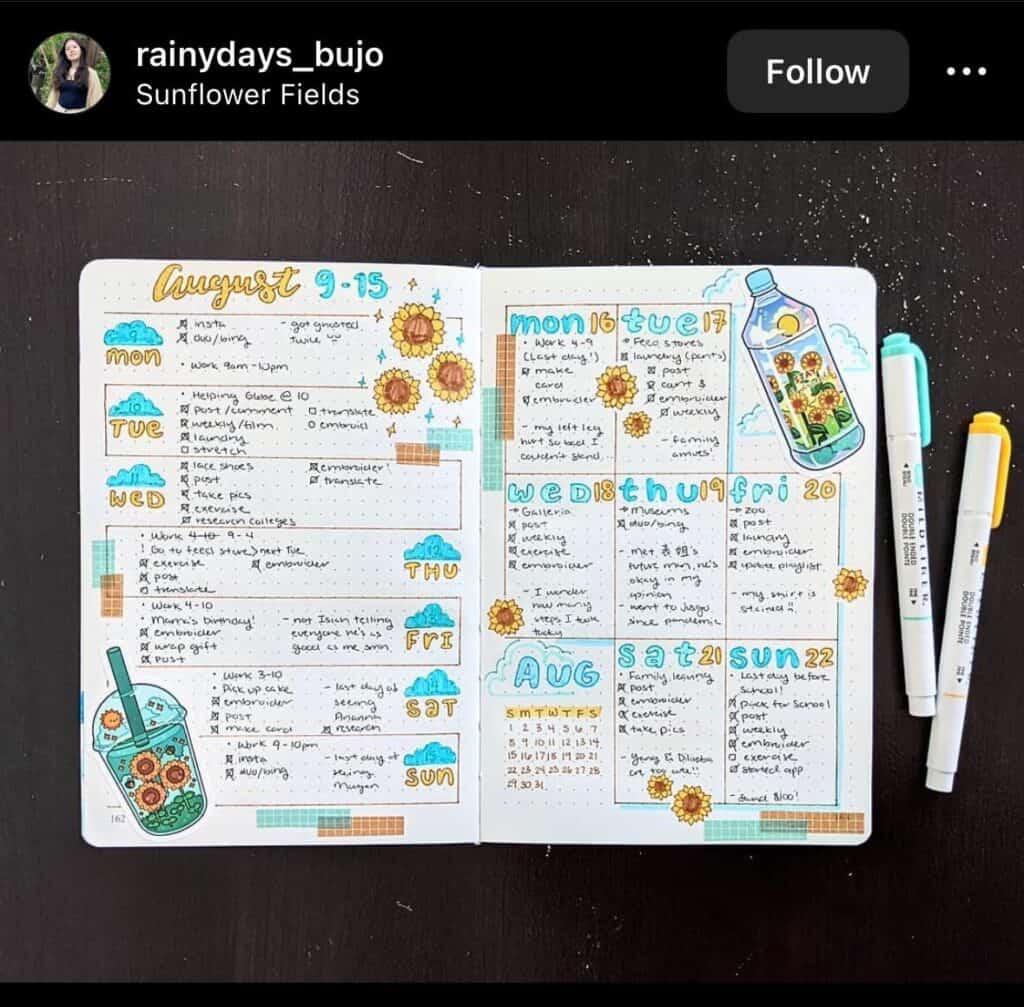 rainydays_bujo
Sunflower Fields
Follow
August 9-15
MON
insta
duo/bing
- got ghosted
twice
• Work 9am-10pm
10
TUE
• Helping Globe @ 10
post/comment
weekly/film
laundry
stretch
translate
embroid
11
WED
lace shoes
post
take pics
exercise
research colleges
embroider!
translate
• Work 4-10 9-4
! Go to Feco store) next Tue
exercise
post
translate
embroider
12
THU
• Work 4-10
• Mama's birthday!
embroider
wrap gift
post
- not Isian telling
everyone he's as
good as me smh
FRI
• Work 3-10
• Pick up cake
embroider
post
make card
- last day of
seeing
research
SAT
• Work 9-10pm
insta
duo/bing
- last day of
seeing
Mugan
SUN
162
mon 16
• Work 4-9
(Last day!)
make
card
embroider
- my left leg
hurt so bad I
couldn't stand...
tue 17
→ Feco stores
laundry (pants)
post
embroider
weekly
- family
arrives!
wed 18
→ Galleria
post
weekly
exercise
embroider
- I wonder
how many
steps I took
today
thu 19
→ Museums
duo/bing
- met 表姐's
future man, he's
okay in my
opinion
- went to Jusgo
since pandemic
fri 20
→ Zoo
post
laundry
embroider
update playlist
- my shirt is
stained!!
AUG
S M T W T F S
1 2 3 4 5 6 7
8 9 10 11 12 13 14
15 16 17 18 19 20 21
22 23 24 25 26 27 28
29 30 31
Sat 21
• Family leaving
post
embroider
exercise
take pics
are too cute!!
Sun 22
• Last day before
school!
pack for school
post
weekly
embroider
exercise
started app
- found $100!
DOUBLE ENDED
DOUBLE POINTE
DOUBLE ENDED
DOUBLE POINTE